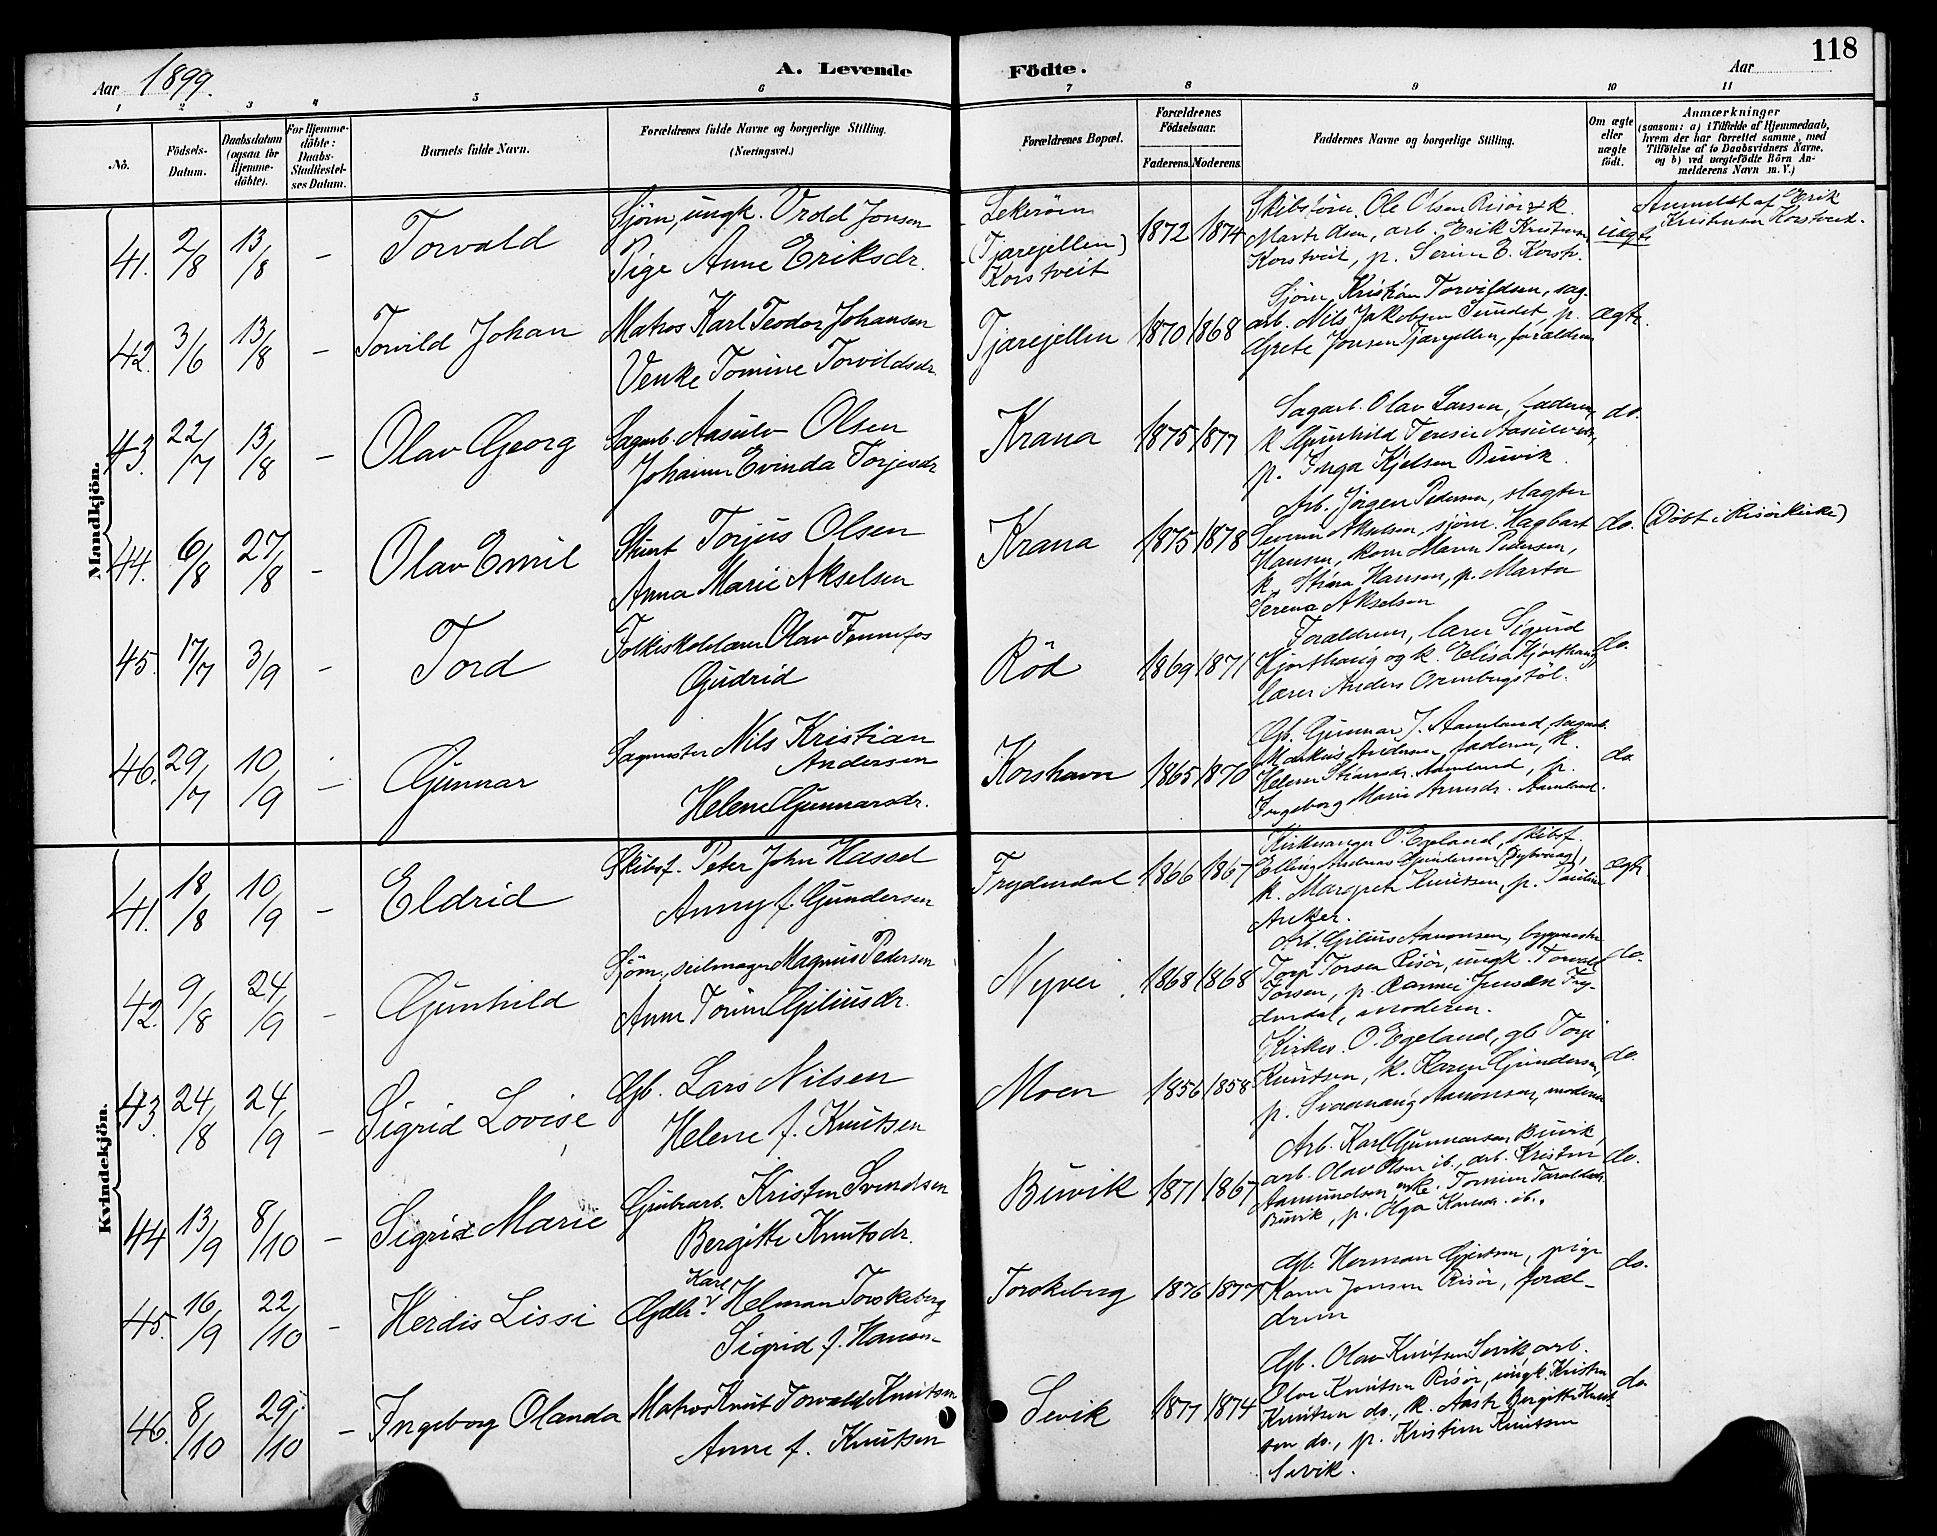 118
Aar 1899. A. Levende Födte. Aar
1 2 3 4 5 6 7 8 9 10 11
No. Födsels-Datum. Daabsdatum (ogsaa for Hjemme-döbte). For Hjemme-döbte: Daabs-Stadfæstel-ses Datum. Barnets fulde Navn. Forældrenes fulde Navne og borgerlige Stilling. (Næringsvei.) Forældrenes Bopæl. Forældrenes Födselsaar. Faderens. Moderens. Faddernes Navne og borgerlige Stilling. Om ægte eller uægte født. Anmærkninger (saasom: a) i Tilfælde af Hjemmedaab, hvem der har forrettet samme, med Tilföielse af to Daabsvidners Navne, og b) ved uægtefödte Börn An-melderens Navn m. V.)
Mandkjön.
41. 2/8 13/8 - Torvald
Sjöm, ungk. Vrold Jonsen
Pige Anne Eriksdr.
(Tjærejellen)
Korstveit
1872 1874
Ole Olsen Risör
arb. Erik Kristensen
Korstveit, p.
uægte
Anmeldt af Erik
Kristensen Korstveit.
42. 3/6 13/8 - Torvild Johan
Matros Karl Teodor Johansen
Venke Tomine Torvildsdr.
Tjærejellen 1870 1868
Sjöm. Kristian Torvildsen, sag-
arb. Nils Jakobsen Sundet, p.
Grete Jonsen Tjærejellen, forældrene
ægte.
43. 22/7 13/8 - Olav Georg
Sagarb. Aasulv Olsen
Johanne Evinda Torjesdr.
Krana 1875 1877
Sagarb. Olav Larsen, faderen,
k. Gunhild Teresie
p. Inga Kjelsen Buvik.
do.
44. 6/8 27/8 - Olav Emil
Torjus Olsen
Anna Marie Akselsen
Krana 1875 1878
Arb. Jörgen Pedersen, slagter
Akselsen, sjöm. Hagbart
Hansen, kone Maren Pedersen,
k. Stina Hansen, p. Marta
Serena Akselsen
do. (Döbt i Risör kirke)
45. 17/7 3/9 - Tord
Folkeskolelærer Olav Fennefos
Gudrid
Röd 1869 1871
Forældrene, lærer Sigurd
Hjorthaug og k. Elisa Hjorthaug,
lærer Anders
do.
46. 29/7 10/9 - Gunnar
Sagmester Nils Kristian
Andersen
Helene Gunnarsdr.
Korshavn 1865 1870
Gb. Gunnar J. Aamland, sagarb.
Markus Andersen, faderen, k.
Helene Aamland, p.
Ingeborg Marie Aamland.
do.
Kvindekjön.
41. 18/8 10/9 - Eldrid
Skibsf. Peter John Hassel
Anny f. Gundersen
Frydendal 1866 1867
Kirkesanger O. Egeland, skibsf.
Elling Andreas Gundersen (Dybvaag),
k. Margrete Knutsen, p. Pauline
Anker.
ægte
42. 9/8 24/9 - Gunhild
Sjöm., seilmager Magnus Pedersen
Anne Torine Giliusdr.
Nyvei 1868 1868
Arb. Gilius Aanonsen, bygmester
Torje Torsen Risör, ungk. Torvald
Torsen, p. Jensen Fry-
dendal, moderen.
do.
43. 24/8 24/9 - Sigrid Lovise
Gb. Lars Nilsen
Helene f. Knutsen
Moen 1856 1858
Kirkes. O. Egeland, gb Torje
Knutsen, k. Karen Gundersen,
p. Aanonsen, moderen
do.
44 13/9 8/10 - Sigrid Marie
Grubearb. Kristen Svendsen
Bergitte Knutsdr.
Buvik 1871 1867
Arb. Karl Gunnarsen Buvik,
arb. Olav Olsen ib., arb. Kristen
Aamundsen, enke Tomine Taraldsen
Buvik, p. Olga ib.
do.
45. 16/9 22/10 - Herdis Lissi
Karl
Gdbr. Helman Torskeberg
Sigrid f. Hansen
Torskeberg 1876 1877
Gb. Herman Gjertsen, pige
Karen Jensen Risör, foræl-
drene
do.
46. 8/10 29/10 - Ingeborg Olanda
Matros Knut Torvald Knutsen
Anne f. Knutsen
Sevik 1871 1874
Gb. Olav Knutsen Sevik arb.
Olav Knutsen Risör, ungk Kristen
Knutsen do., k. Aaste Bergitte Knut-
sen do., p. Kristine Knutsen
Sevik.
do.